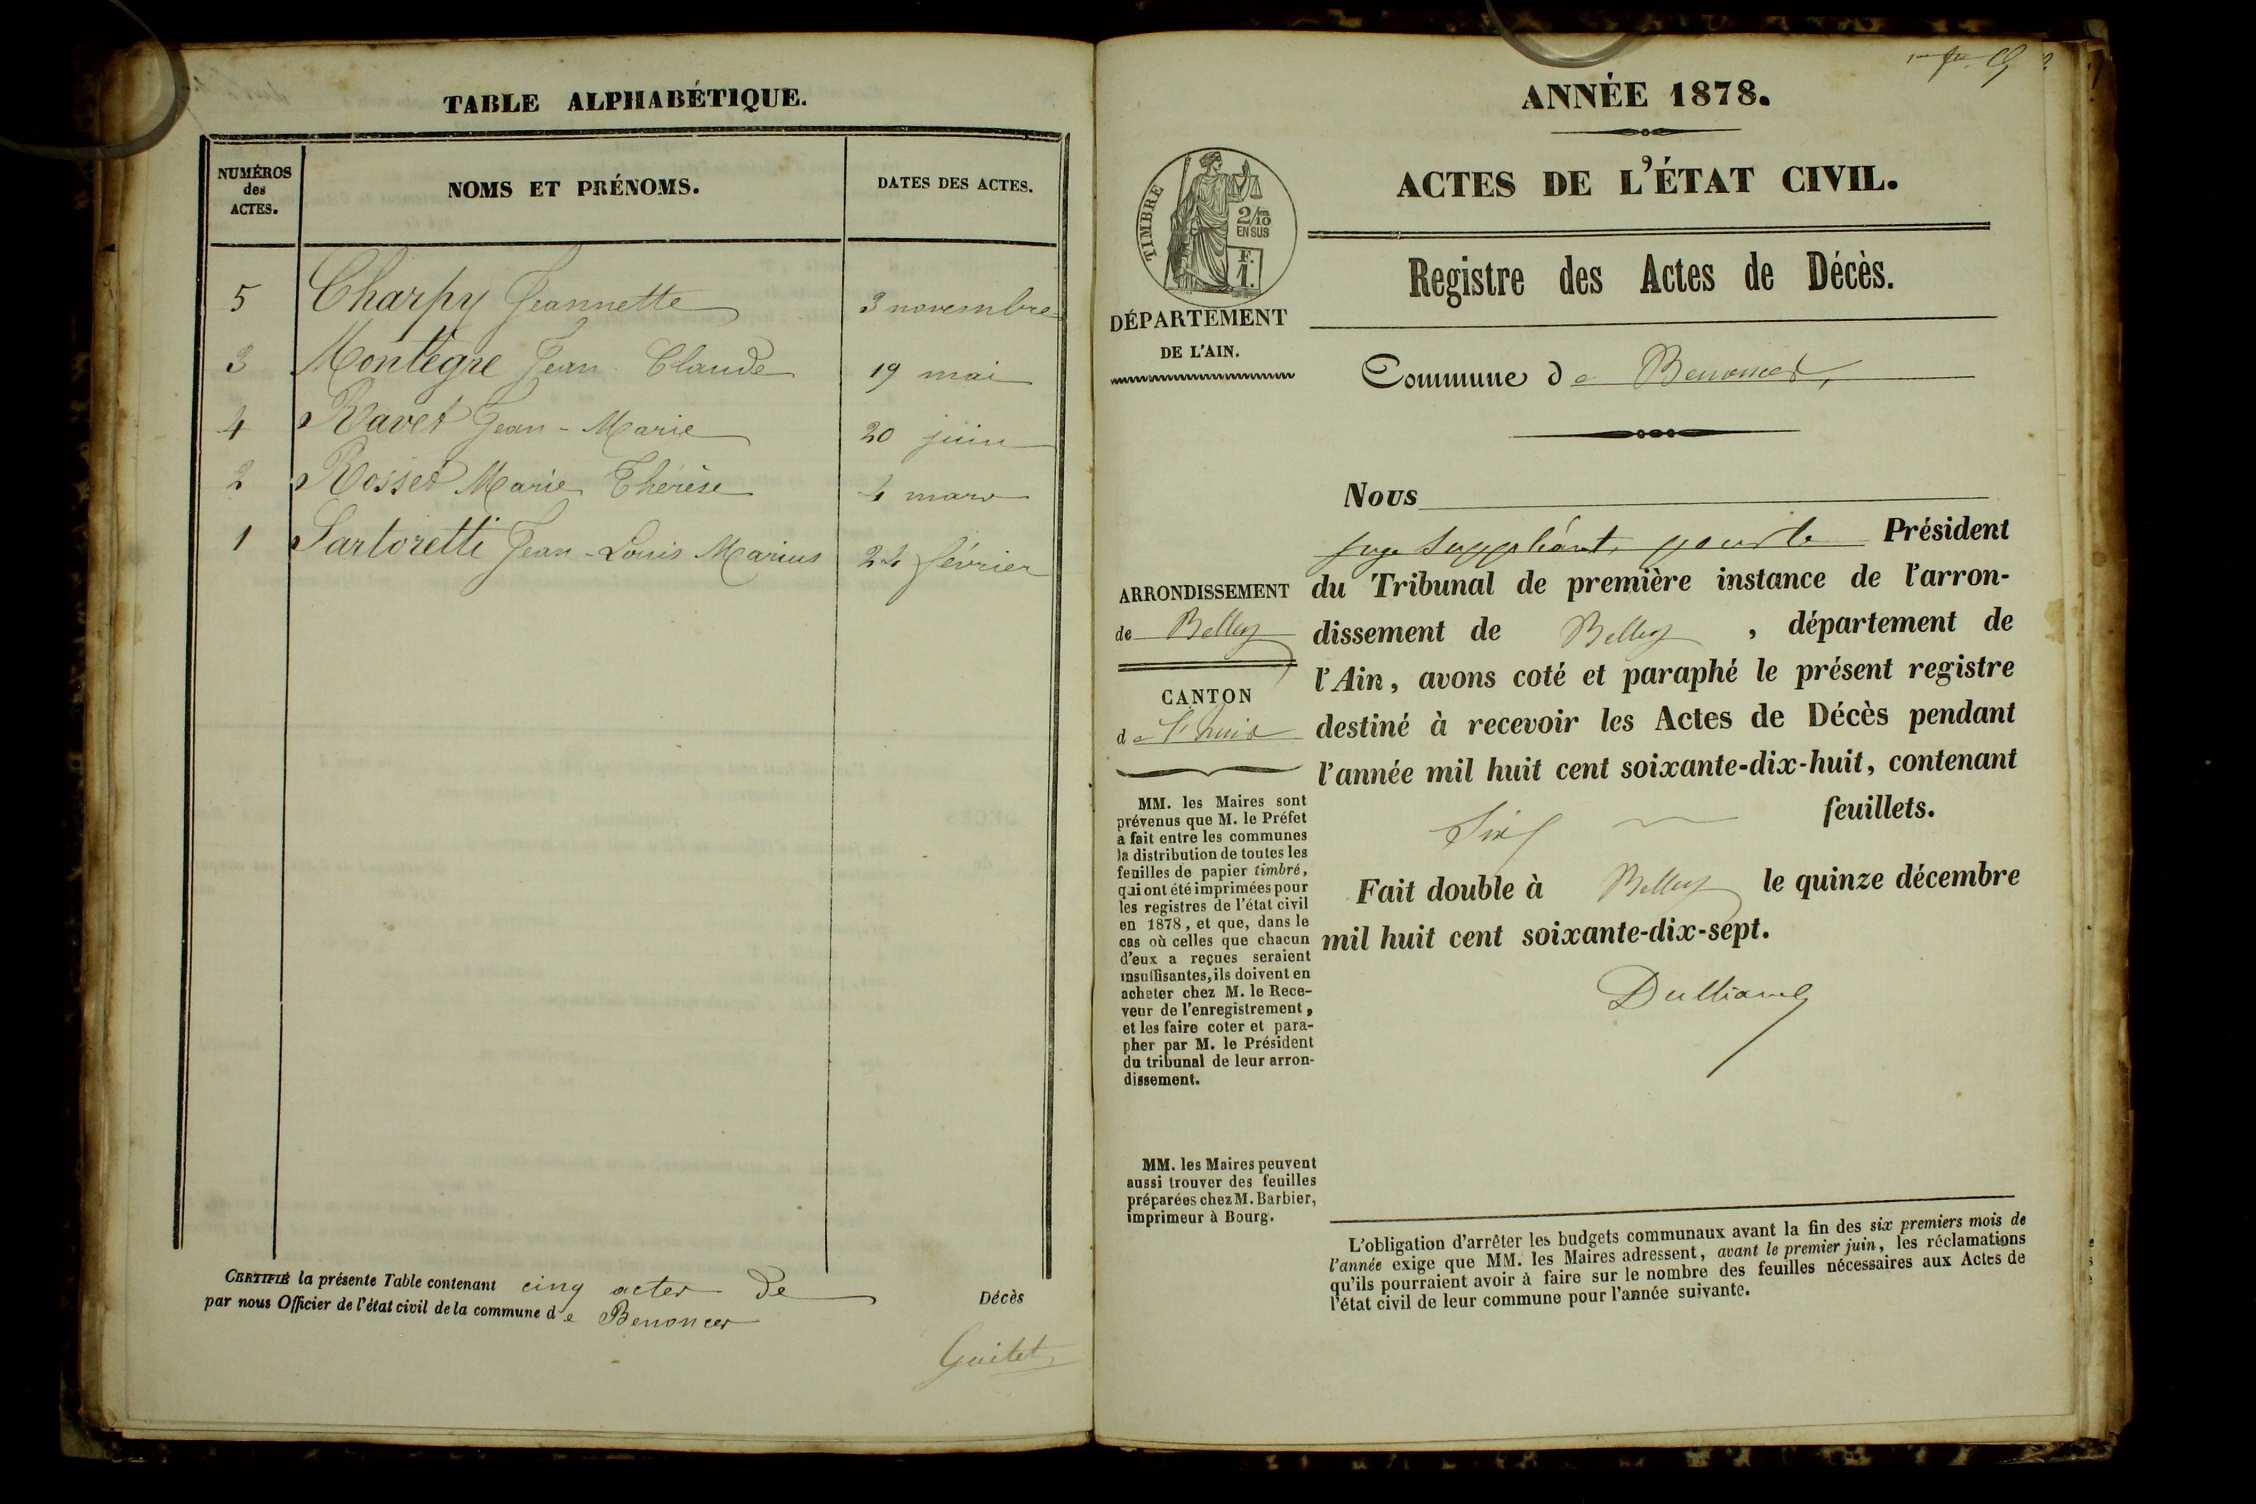 TABLE ALPHABÉTIQUE.
NUMÉROS
des
ACTES.
NOMS ET PRÉNOMS.
DATES DES ACTES.
5 Charpy Jeannette 3 novembre
3 Montegre Jean Claude 19 mai
4 Ravet Jean-Marie 20 juin
2 Rosset Marie Thérèse 4 mars
1 Sartoretti Jean-Louis Marius 24 février
CERTIFIÉ la présente Table contenant cinq actes de Décès
par nous Officier de l'état civil de la commune de Benonces
Guitet
ANNÉE 1878.
ACTES DE L'ÉTAT CIVIL.
TIMBRE
2/10
EN SUS
F.
1.
Registre des Actes de Décès.
DÉPARTEMENT
DE L'AIN.
Commune de Benonces,
Nous
juge suppléant, pour le Président
du Tribunal de première instance de l'arron-
dissement de Belley, département de
l'Ain, avons coté et paraphé le présent registre
destiné à recevoir les Actes de Décès pendant
l'année mil huit cent soixante-dix-huit, contenant
Six feuillets.
Fait double à Belley le quinze décembre
mil huit cent soixante-dix-sept.
ARRONDISSEMENT
de Belley
CANTON
de L'huis
MM. les Maires sont
prévenus que M. le Préfet
a fait entre les communes
la distribution de toutes les
feuilles de papier timbré,
qui ont été imprimées pour
les registres de l'état civil
en 1878, et que, dans le
cas où celles que chacun
d'eux a reçues seraient
insuffisantes, ils doivent en
acheter chez M. le Rece-
veur de l'enregistrement,
et les faire coter et para-
pher par M. le Président
du tribunal de leur arron-
dissement.
MM. les Maires peuvent
aussi trouver des feuilles
préparées chez M. Barbier,
imprimeur à Bourg.
L'obligation d'arrêter les budgets communaux avant la fin des six premiers mois de
l'année exige que MM. les Maires adressent, avant le premier juin, les réclamations
qu'ils pourraient avoir à faire sur le nombre des feuilles nécessaires aux Actes de
l'état civil de leur commune pour l'année suivante.